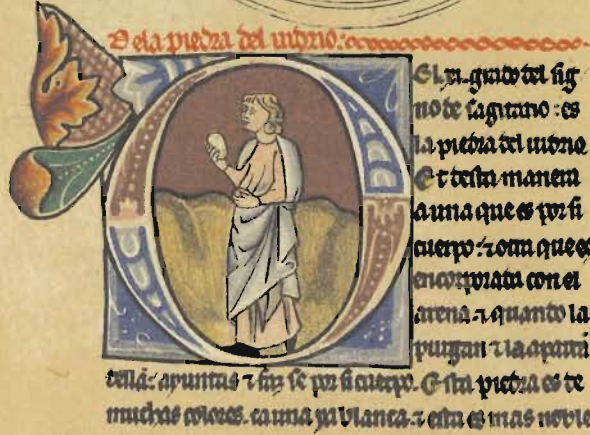 De la piedra del uidrio:
Del .xi. grado del sig
no de sagitario : es
la piedra del uidrio
Et desta manera
a una que es por si
cuerpo : ⁊ otra que es
encorporada con el
arena . ⁊ quando la
purgan ⁊ la apartan
della : ayuntas ⁊ faz se por si cuerpo. Esta piedra es de
muchas colores. ca una ya blanca . ⁊ esta es mas noble